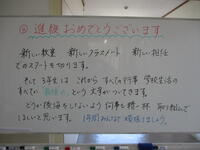 ◎ 進級おめでとうございます
新しい教室 新しいクラスメート 新しい担任
でのスタートを切ります。
そして3年生は これから すべての行事 学校生活の
すべてに 最後の、という文字がついてきます。
どうか後悔をしないよう 何事も精一杯 取り組んで
ほしいと思います。 1年間みんなで頑張りましょう。